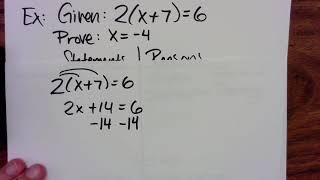 Ex: Given: 2(x+7)=6
Prove: x=-4
Statements | Reasons
2(x+7)=6
2x+14=6
-14 -14